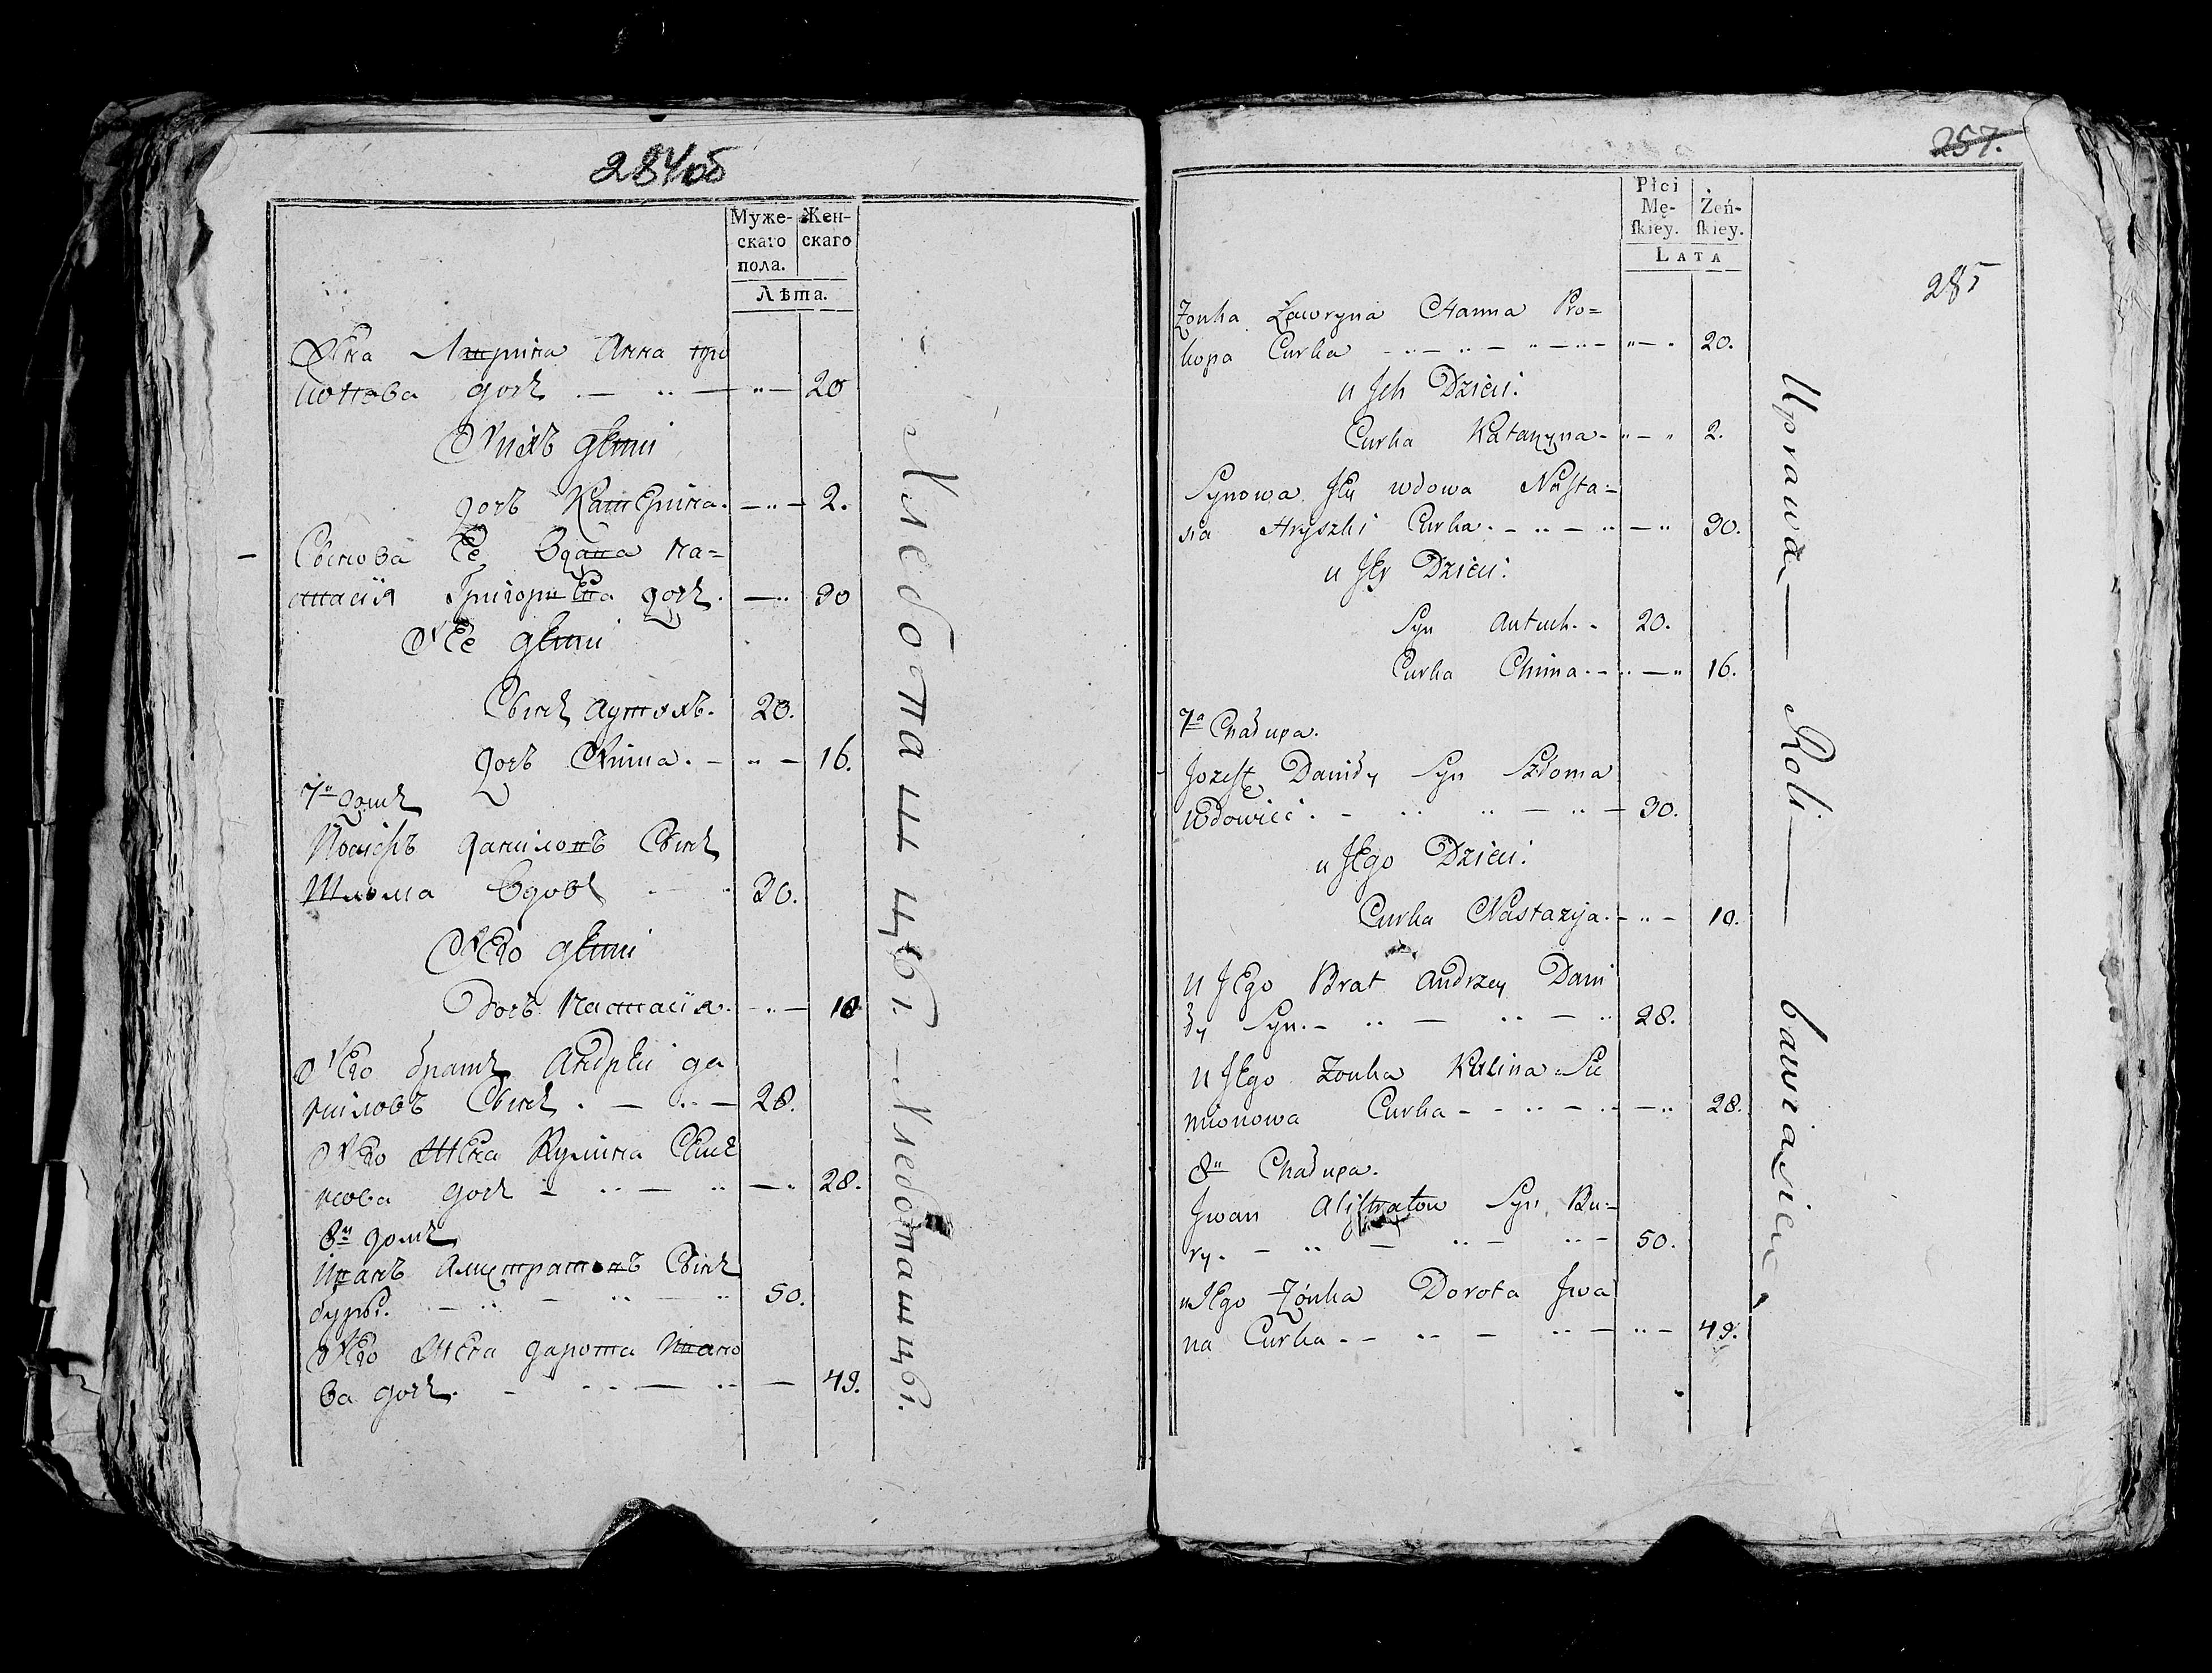 284об
Муже-
скаго
пола.
Жен-
скаго
Лѣта.
Жена Лаврина Анна про
копова дочь 20
И ихъ дѣти
дочь Катерина. 2.
Сынова Ее вдова На=
стасія Григорьева дочь. 30
И Ее дѣти
Сынъ Аутюхъ. 20.
дочь Хима. 16.
7й домъ
Іосифъ даниловъ Сынъ
Шлома вдовъ 30.
И Его дѣти
Дочь Настасія. 10
И Его братъ Андрѣй да
ниловъ Сынъ. 28.
И Его Жена Кулина Семе
нова дочь 28.
8й домъ
Иванъ Алистратовъ Сынъ
бурый. 50.
И Его Жена дарота Ивано
ва дочь. 49.
Хлебопашцы. — Хлебопашцы.
257.
285
Płci
Mę-
ſkiey.
Żeń-
ſkiey.
LATA
Żonka Ławryna Hanna Pro=
kopa Curka 20.
u Jch Dzieci:
Curka Katarzyna 2.
Synowa Jey wdowa Nasta=
sia Hryszki Curka. 30.
u Jey Dzieci:
Syn Autuch. 20.
Curka Chima. 16.
7a Chałupa.
Jozeff Daniły Syn Szłoma
Wdowiec. 30.
u Jego Dzieci:
Curka Nastazija. 10.
u Jego Brat Andrzey Dani
ły Syn. 28.
u Jego Zonka Kulina Sie
mionowa Curka 28.
8a Chałupa.
Jwan Alistratow Syn Bu=
ry. 50.
u Jego Żonka Dorota Jwa
na Curka. 49.
Uprawą — Roli — bawiąsieę